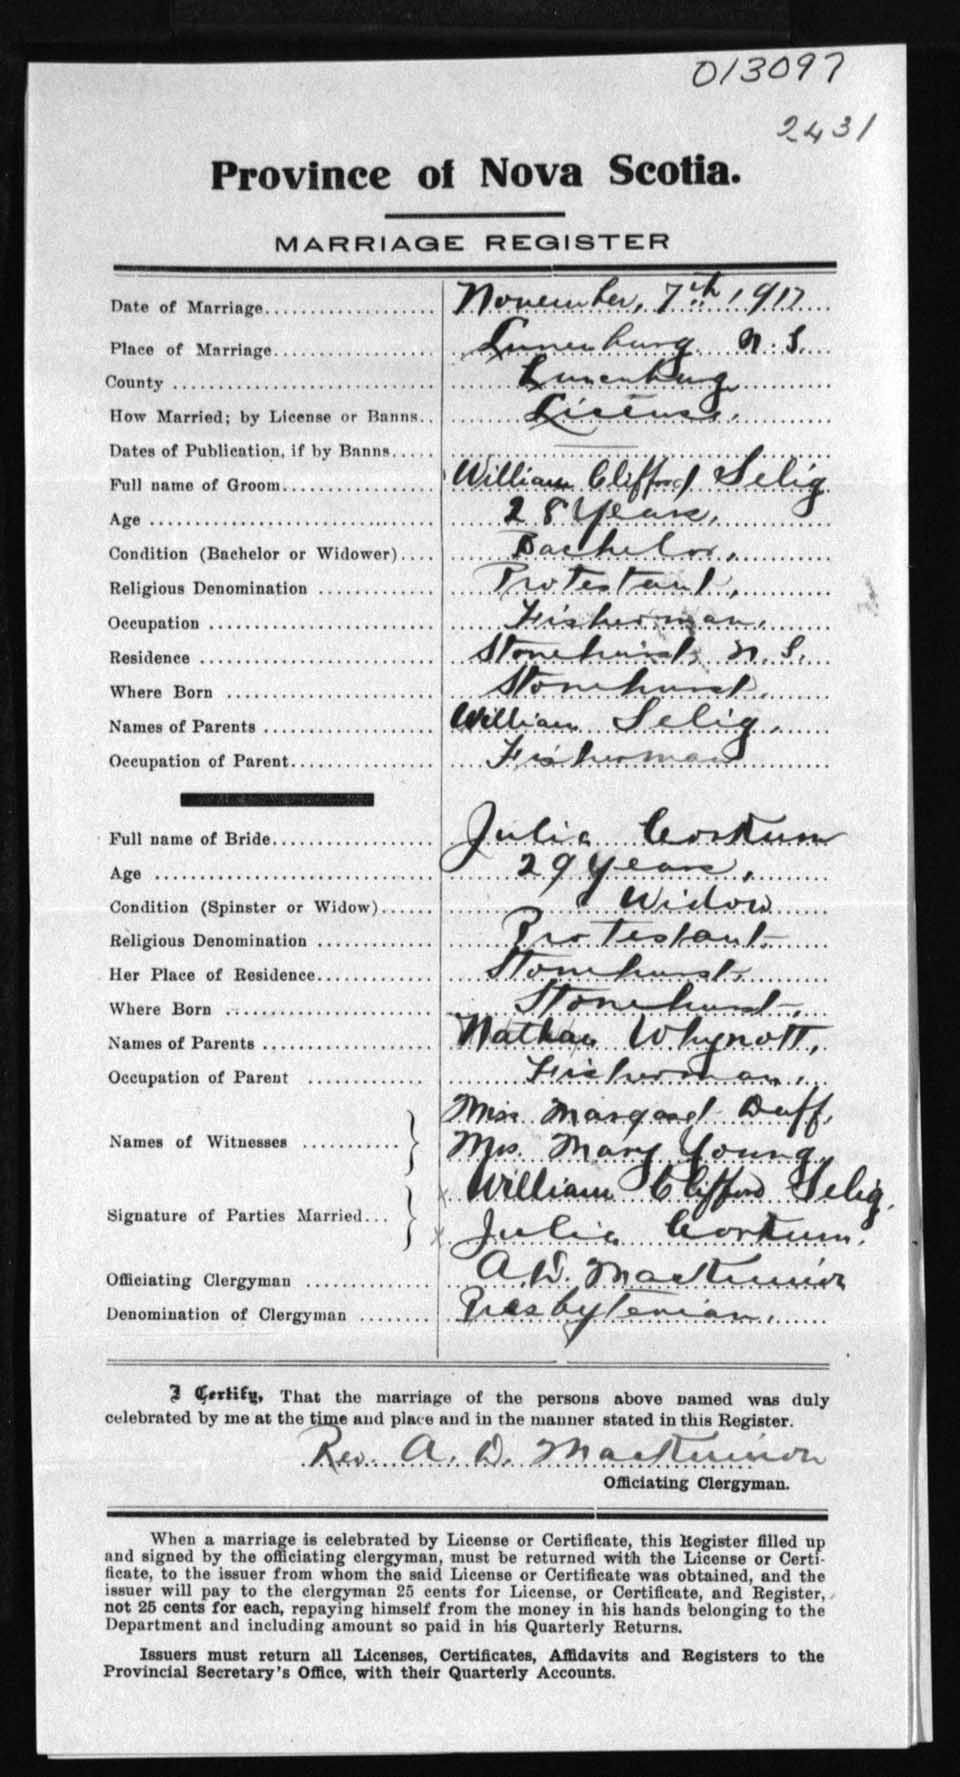 013097
2431
Province of Nova Scotia.
MARRIAGE REGISTER
Date of Marriage................... November, 7th, 1917
Place of Marriage.................. Lunenburg N. S.
County ............................ Lunenburg
How Married; by License or Banns.. License,
Dates of Publication, if by Banns.....
Full name of Groom................. William Clifford Selig
Age ............................... 28 Years,
Condition (Bachelor or Widower).... Bachelor,
Religious Denomination ............ Protestant,
Occupation ........................ Fisherman,
Residence ......................... Stonehurst, N. S.
Where Born ........................ Stonehurst,
Names of Parents .................. William Selig,
Occupation of Parent............... Fisherman
Full name of Bride................. Julia Corkum
Age ............................... 29 Years,
Condition (Spinster or Widow)...... Widow
Religious Denomination ............ Protestant
Her Place of Residence............. Stonehurst,
Where Born ........................ Stonehurst,
Names of Parents .................. Nathan Whynott,
Occupation of Parent ............. Fisherman,
Names of Witnesses ........... } Miss Margaret Duff,
Mrs. Mary Young,
Signature of Parties Married... } x William Clifford Selig,
x Julia Corkum.
Officiating Clergyman ............. A. D. MacKinnon
Denomination of Clergyman ........ Presbyterian,
I Certify, That the marriage of the persons above named was duly
celebrated by me at the time and place and in the manner stated in this Register.
Rev. A. D. MacKinnon
Officiating Clergyman.
When a marriage is celebrated by License or Certificate, this Register filled up
and signed by the officiating clergyman, must be returned with the License or Certi-
ficate, to the issuer from whom the said License or Certificate was obtained, and the
issuer will pay to the clergyman 25 cents for License, or Certificate, and Register,
not 25 cents for each, repaying himself from the money in his hands belonging to the
Department and including amount so paid in his Quarterly Returns.
Issuers must return all Licenses, Certificates, Affidavits and Registers to the
Provincial Secretary's Office, with their Quarterly Accounts.